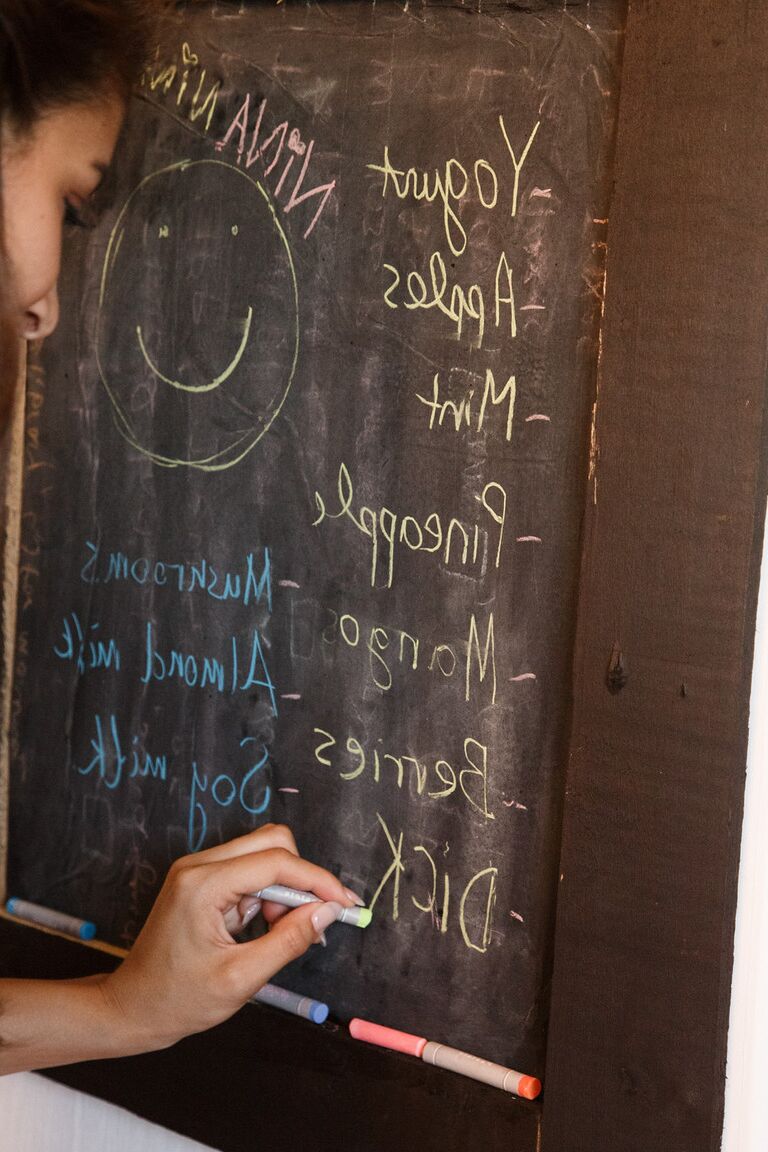 NiNA
- Yogurt
- Apples
- Mint
- Pineapple
- Mangos
- Berries
- DicK
- Mushrooms
- Almond milk
- Soy milk